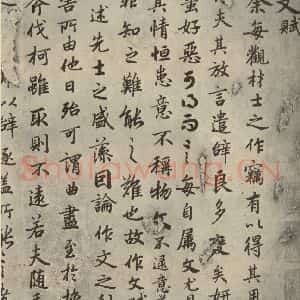 文賦
余每觀材士之作竊有以得其用
夫其放言遣辭良多變矣妍
蚩好惡可得而言每自属文尤見
其情恒患意不稱物文不逮意
非知之難能之難也故作文
述先士之盛藻因論作文之利
害所由他日殆可謂曲盡至於操
斧伐柯雖取則不遠若夫随手
以辭逐蓋所能
Shufawang.CN